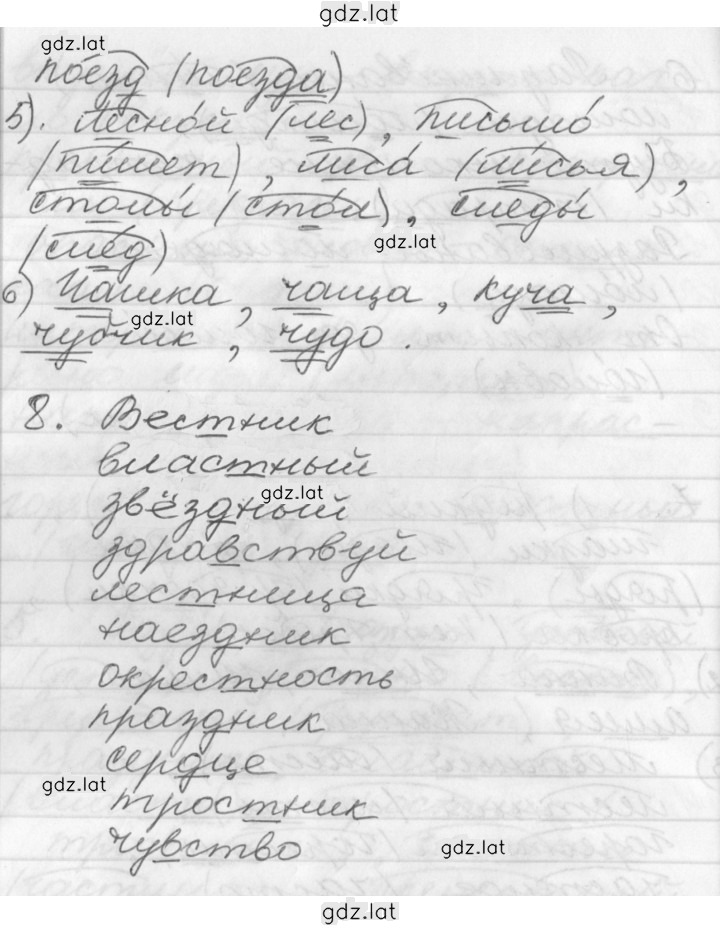 gdz.lat
gdz.lat
поезд (поезда)
5). лесной (лес), письмо
(пишет), лиса (лисья),
столы (стол), следы
gdz.lat
(след)
6) Чашка, чаща, куча,
gdz.lat
чубчик, чудо.
8. Вестник
властный
gdz.lat
звёздный
здравствуй
лестница
наездник
окрестность
праздник
сердце
gdz.lat
тростник
чувство
gdz.lat
gdz.lat